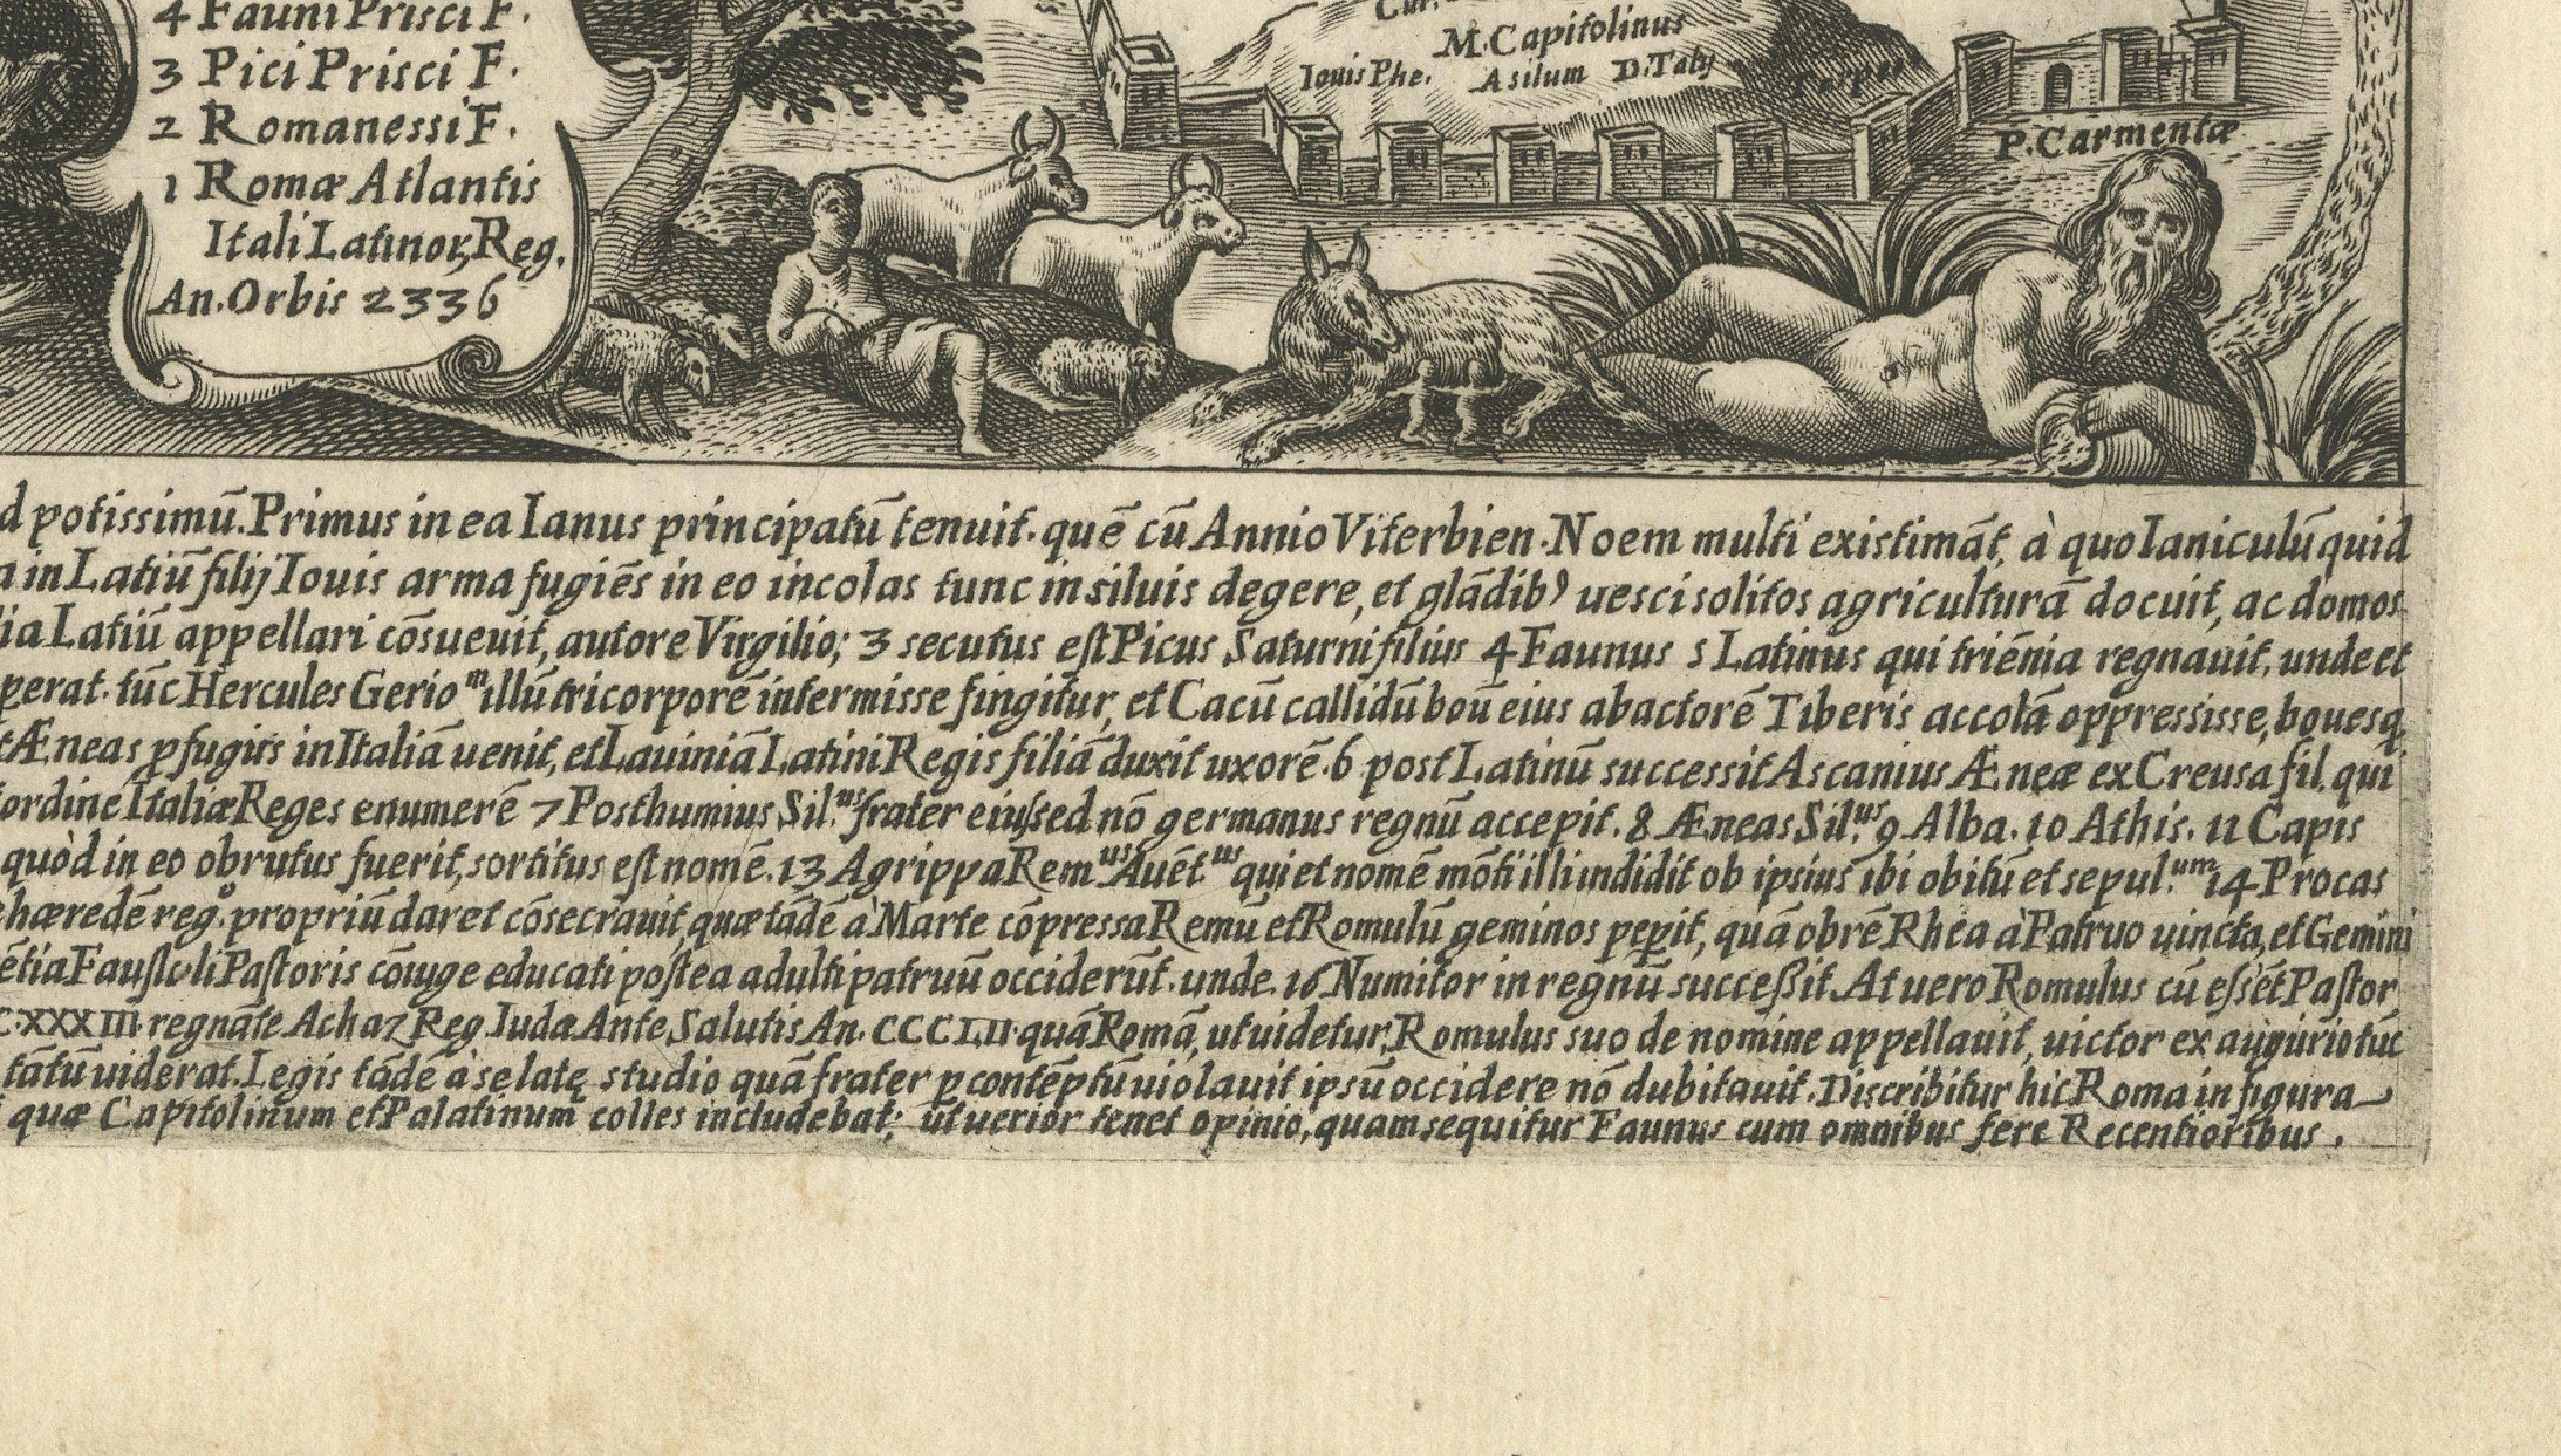 4 Fauni Prisci F.
3 Pici Prisci F.
2 Romanessi F.
1 Romæ Atlantis
Itali Latinoꝝ Reg.
An. Orbis 2336
M. Capitolinus
Iouis Phe. Asilum D. Talij
P. Carmentæ
d potissimū. Primus in ea Ianus principatū tenuit. quē cū Annio Viterbien. Noem multi existimāt, à quo Ianiculū quid
a in Latiū filij Iouis arma fugiēs in eo incolas tunc in siluis degere, et glādibꝰ uesci solitos agriculturā docuit, ac domos
lia Latiū appellari cōsueuit, autore Virgilio; 3 secutus eſt Picus Saturni filius 4 Faunus 5 Latinus qui triēnia regnauit. unde et
perat. tūc Hercules Gerioᵐ illū tricorporē intermisse fingitur, et Cacū callidū boū eius abactorē Tiberis accolā oppressisse, bouesq
t Æneas ꝑfugus in Italiā uenit, et Lauiniā Latini Regis filiā duxit uxorē. 6 post Latinū successit Ascanius Æneæ ex Creusa fil. qui
ordine Italiæ Reges enumerē 7 Posthumius Sil.ᵘˢ frater eiuſ sed nō germanus regnū accepit. 8 Æneas Sil.ᵘˢ 9 Alba. 10 Athis. 11 Capis
quòd in eo obrutus fuerit, sortitus eſt nomē. 13 Agrippa Remᵘˢ Auēt.ᵘˢ qui et nomē mōti illi indidit ob ipsius ibi obitū et sepul.ᵘᵐ 14 Procas
hæredē reg.º propriū daret cōsecrauit, quæ tādē à Marte cōpressa Remū et Romulū geminos pepit, quā obrē Rhea à Patruo uincta, et Gemini
ētia Fauſtuli Paſtoris cōiuge educati poſtea adulti patruū occiderūt. unde. 16 Numitor in regnū succeſsit. At uero Romulus cū eſsēt Paſtor
C.XXXIII. regnāte Achaz Reg. Iudæ Ante Salutis An. CCCLII. quā Romā, ut uidetur, Romulus suo de nomine appellauit, uictor ex augurio tūc
tātū uiderat. Legis tādē à se latę studio quā frater ꝑ contēptū uiolauit ipsū occidere nō dubitauit. Discribitur hic Roma in figura
quæ Capitolinum et Palatinum colles includebat; ut uerior tenet opinio, quam sequitur Faunus cum omnibus fere Recentioribus.